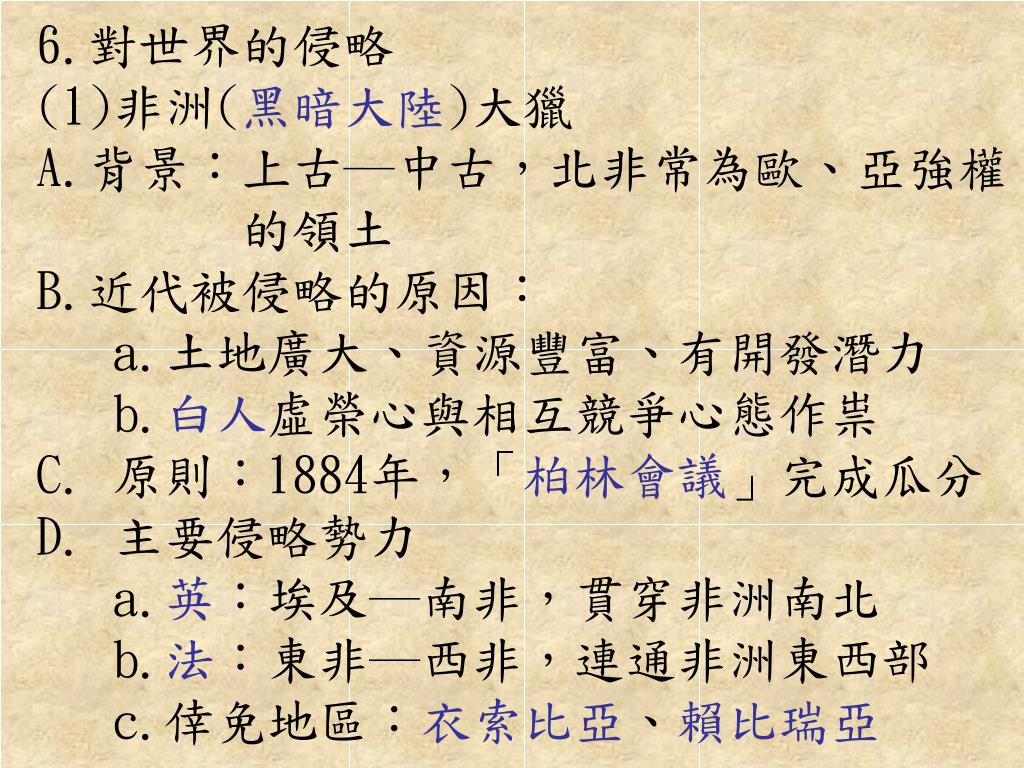 6.對世界的侵略
(1)非洲(黑暗大陸)大獵
A.背景：上古—中古，北非常為歐、亞強權
的領土
B.近代被侵略的原因：
a.土地廣大、資源豐富、有開發潛力
b.白人虛榮心與相互競爭心態作祟
C. 原則：1884年，「柏林會議」完成瓜分
D. 主要侵略勢力
a.英：埃及—南非，貫穿非洲南北
b.法：東非—西非，連通非洲東西部
c.倖免地區：衣索比亞、賴比瑞亞